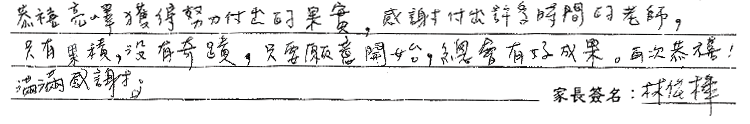 恭禧亮嶧獲得努力付出的果實，感謝付出許多時間的老師，
只有累積，沒有奇蹟，只要願意開始，總會有好成果。再次恭禧！
滿滿感謝
家長簽名：林俊樺